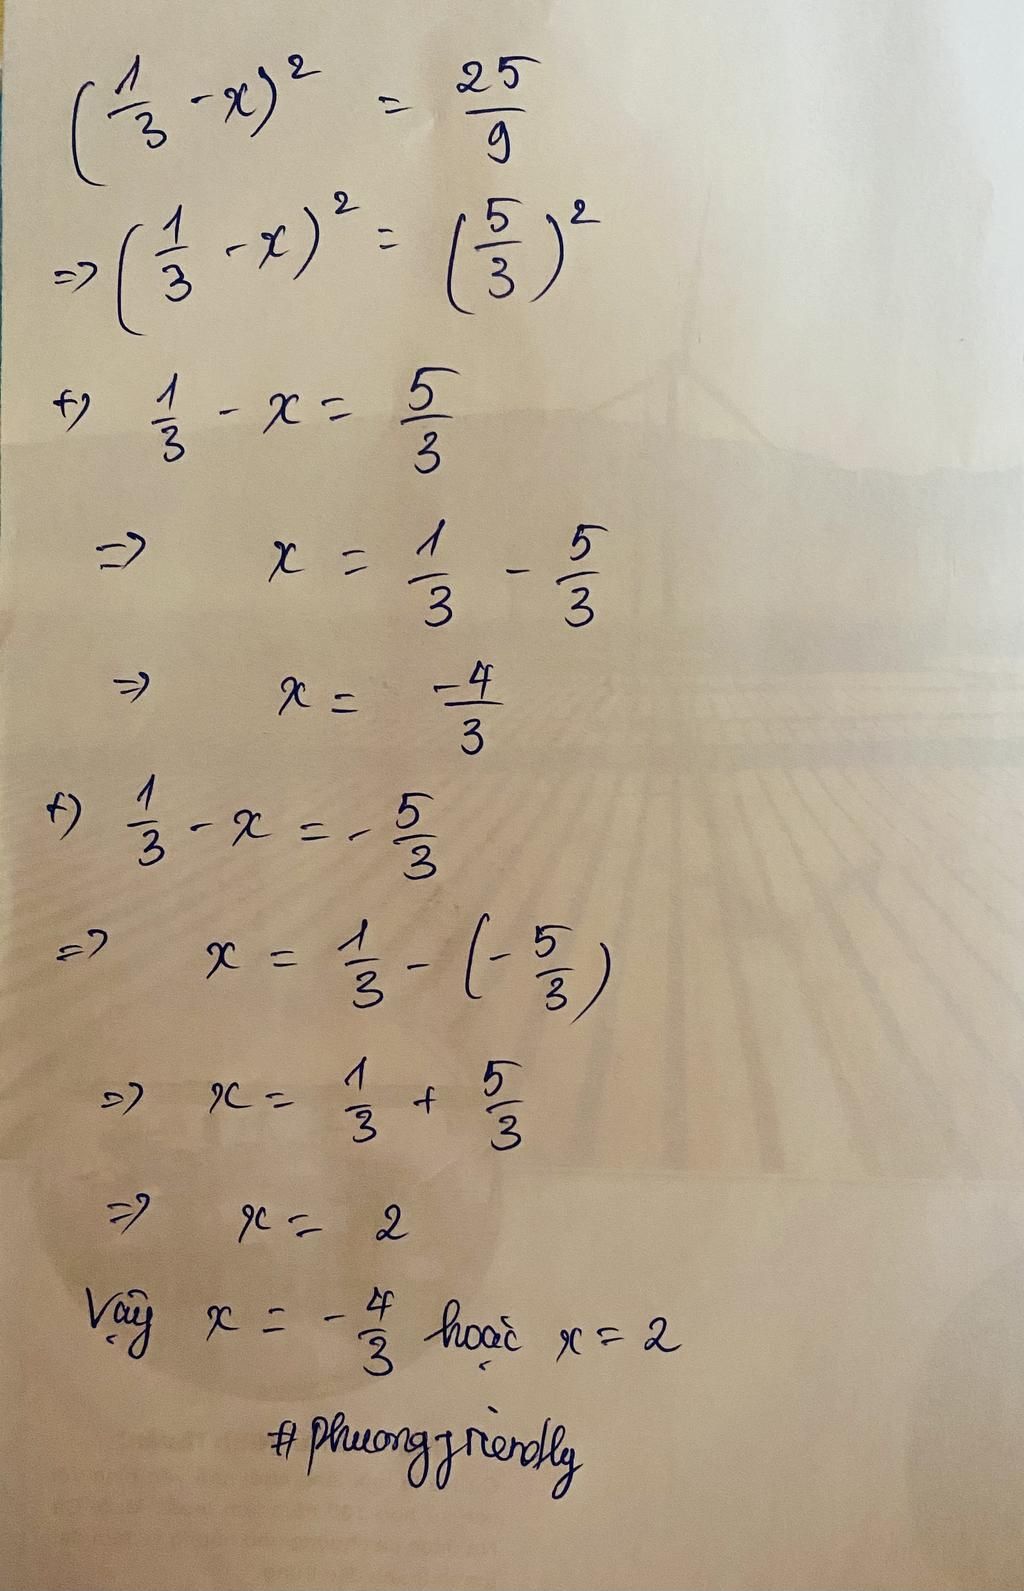 (1/3 - x)² = 25/9
=> (1/3 - x)² = (5/3)²
+) 1/3 - x = 5/3
=> x = 1/3 - 5/3
=> x = -4/3
+) 1/3 - x = - 5/3
=> x = 1/3 - (- 5/3)
=> x = 1/3 + 5/3
=> x = 2
Vậy x = - 4/3 hoặc x = 2
#phuongfriendly